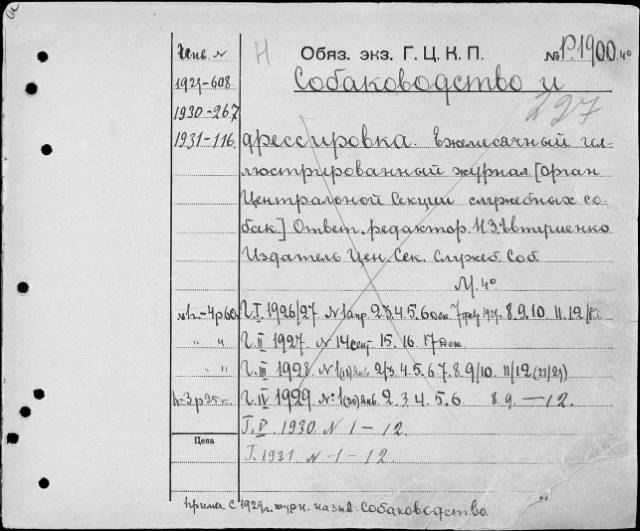 Инв №
Н
Обяз. экз. Г.Ц.К.П.
№ Р.1900.4º
1929-608
Собаководство и
1930-267
227
1931-116
дрессировка. Ежемесячный ил-
люстрированный журнал [орган
Центральной Секции служебных со-
бак.] Ответ. редактор. Н.З. Евтушенко
Издатель Цен. Сек. Служеб. Соб.
М. 4º
Г.I. 1926/27. N 1 апр. 2. 3. 4. 5. 6 дек. 7 1927. 8. 9. 10. 11. 12
" " Г.II 1927. N 14 сент. 15. 16. 17 дек.
" " Г.III 1928. N 1 янв. 2/3. 4. 5. 6. 7. 8. 9/10. 11/12 (21/29)
Г.IV 1929. №1(30) янв. 2. 3. 4. 5. 6 8. 9. — 12.
Г.V. 1930. N 1 — 12.
Цена
Г. 1931 N - 1 - 12
Примеч. С 1929 г. журн. назыв. Собаководство.